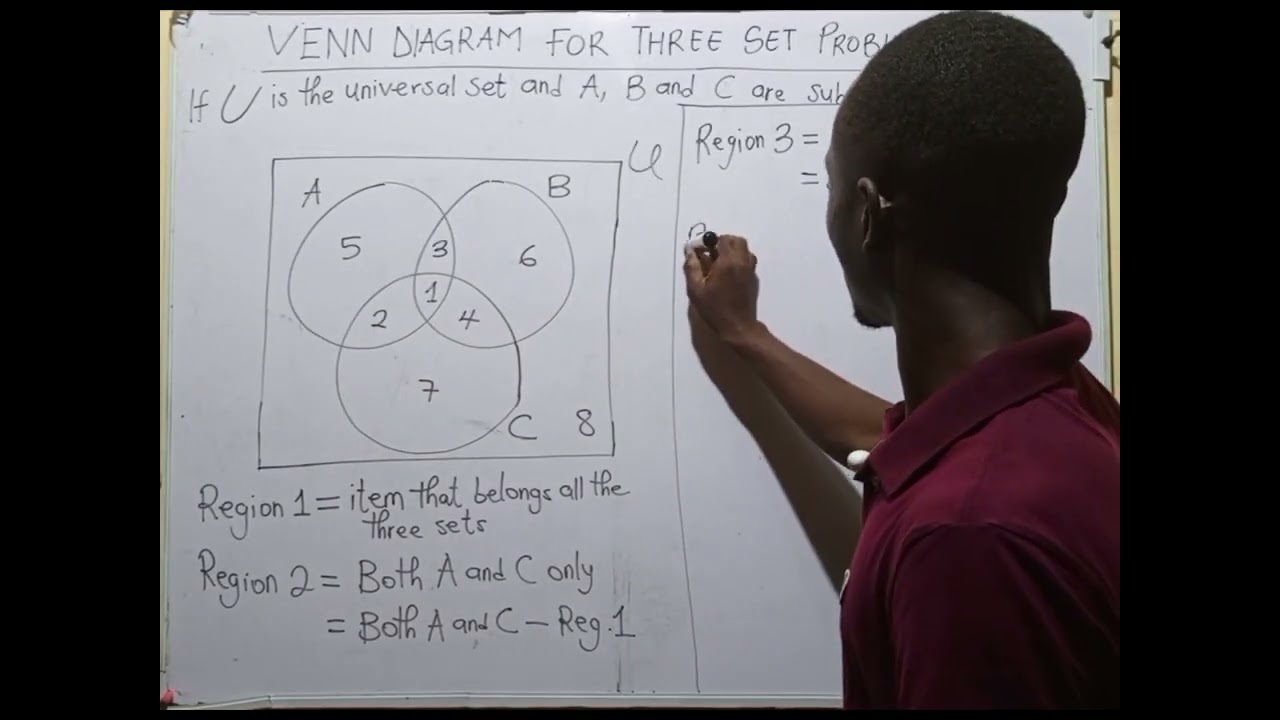 VENN DIAGRAM FOR THREE SET
If U is the universal set and A, B and C are
U
A
B
5
3
6
1
2
4
7
C
8
Region 1 = item that belongs all the
three sets
Region 2 = Both A and C only
= Both A and C - Reg. 1
Region 3 =
=